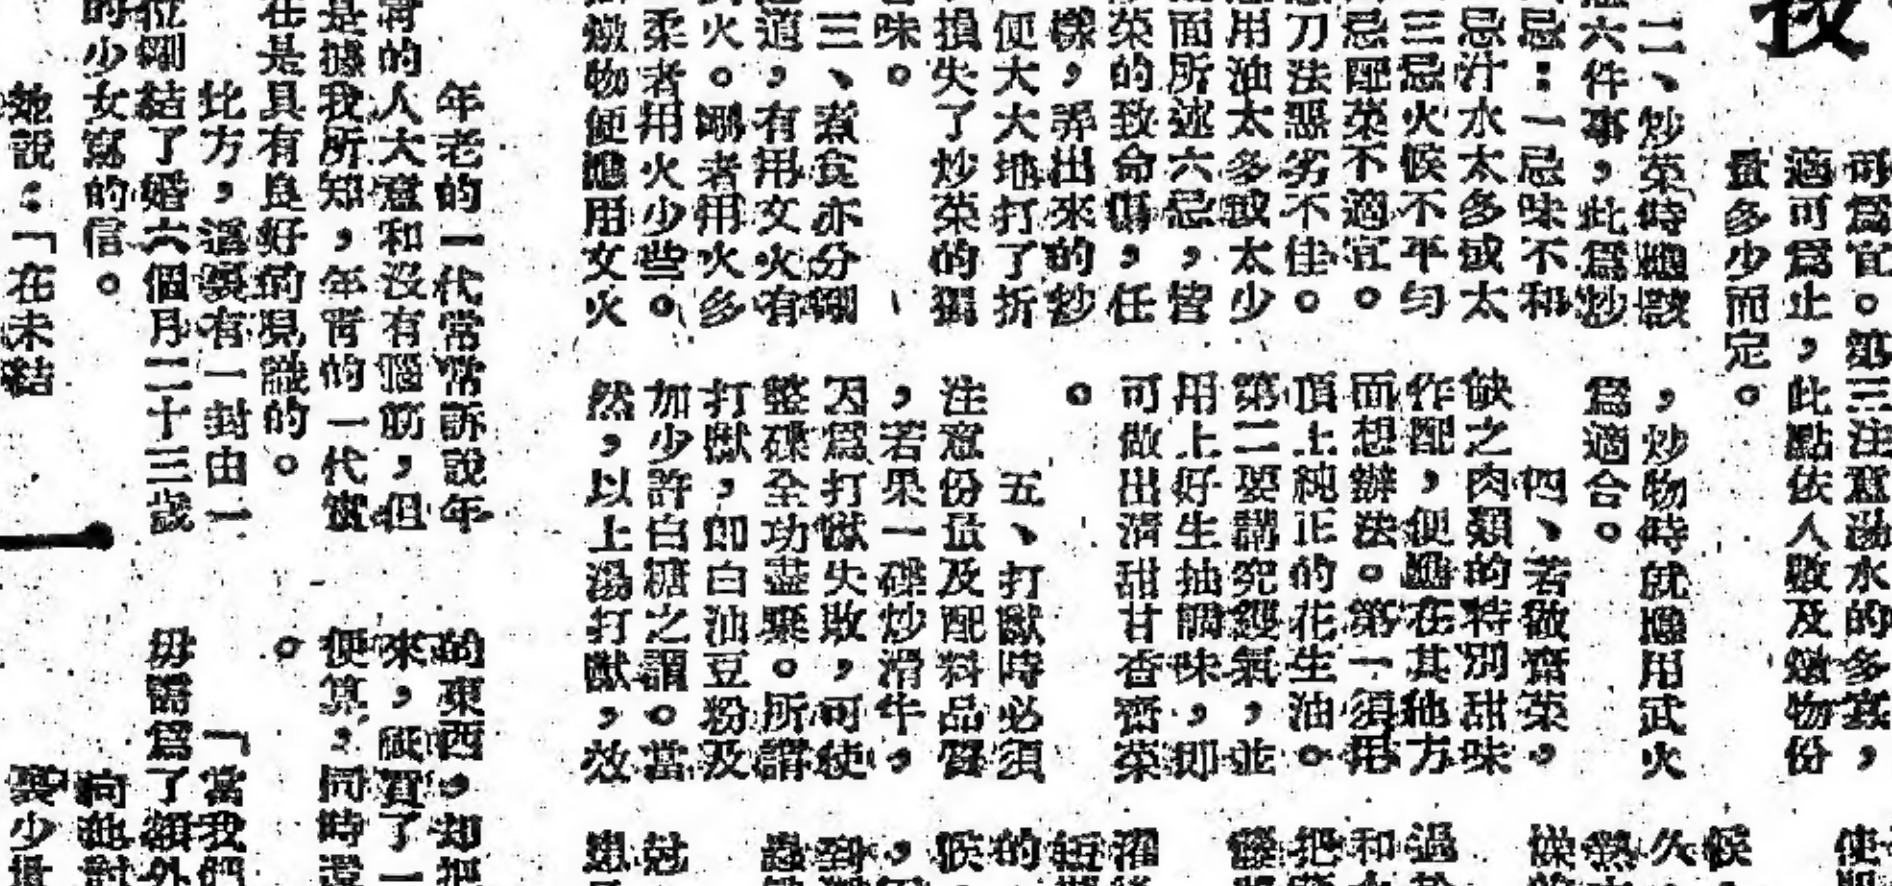 可爲宜。第三注意湯水的多寡，
適可爲止，此點依人數及燉物份
量多少而定。
二、炒菜時應該
六件事，此爲炒
忌：一忌味不和
忌汁水太多或太
三忌火候不平勻
忌配菜不適宜。
刀法惡劣不佳。
用油太多或太少
面所述六忌，皆
菜的致命傷，任
樣，弄出來的炒
便大大地打了折
損失了炒菜的獨
味。
三、煮食亦分剛
道，有用文火有
火。剛者用火多
柔者用火少些。
燉物便應用文火
，炒物時就應用武火
爲適合。
四、若做齋菜，
缺之肉類的特別甜味
作配，便應在其他方
面想辦法。第一須用
頂上純正的花生油。
第二要講究鑊氣，並
用上好生抽調味，即
可做出清甜甘香齋菜
。
五、打獻時必須
注意份量及配料品質
，若果一碟炒滑牛，
因爲打獻失敗，可使
整碟全功盡棄。所謂
打獻，即白油豆粉及
加少許白糖之謂。當
然，以上湯打獻，效
候
久
熱
過
和
把
的
候
到
蟲
年老的一代常常訴說年
青的人大意和沒有腦筋，但
是據我所知，年青的一代實
在是具有良好的見識的。
比方，這裏有一封由一
位剛結了婚六個月二十三歲
的少女寫的信。
她說：「在未結
的東西，却把
來，就買了一
便算，同時還
。
「當我們
毋需爲了額外
向他討
要少量